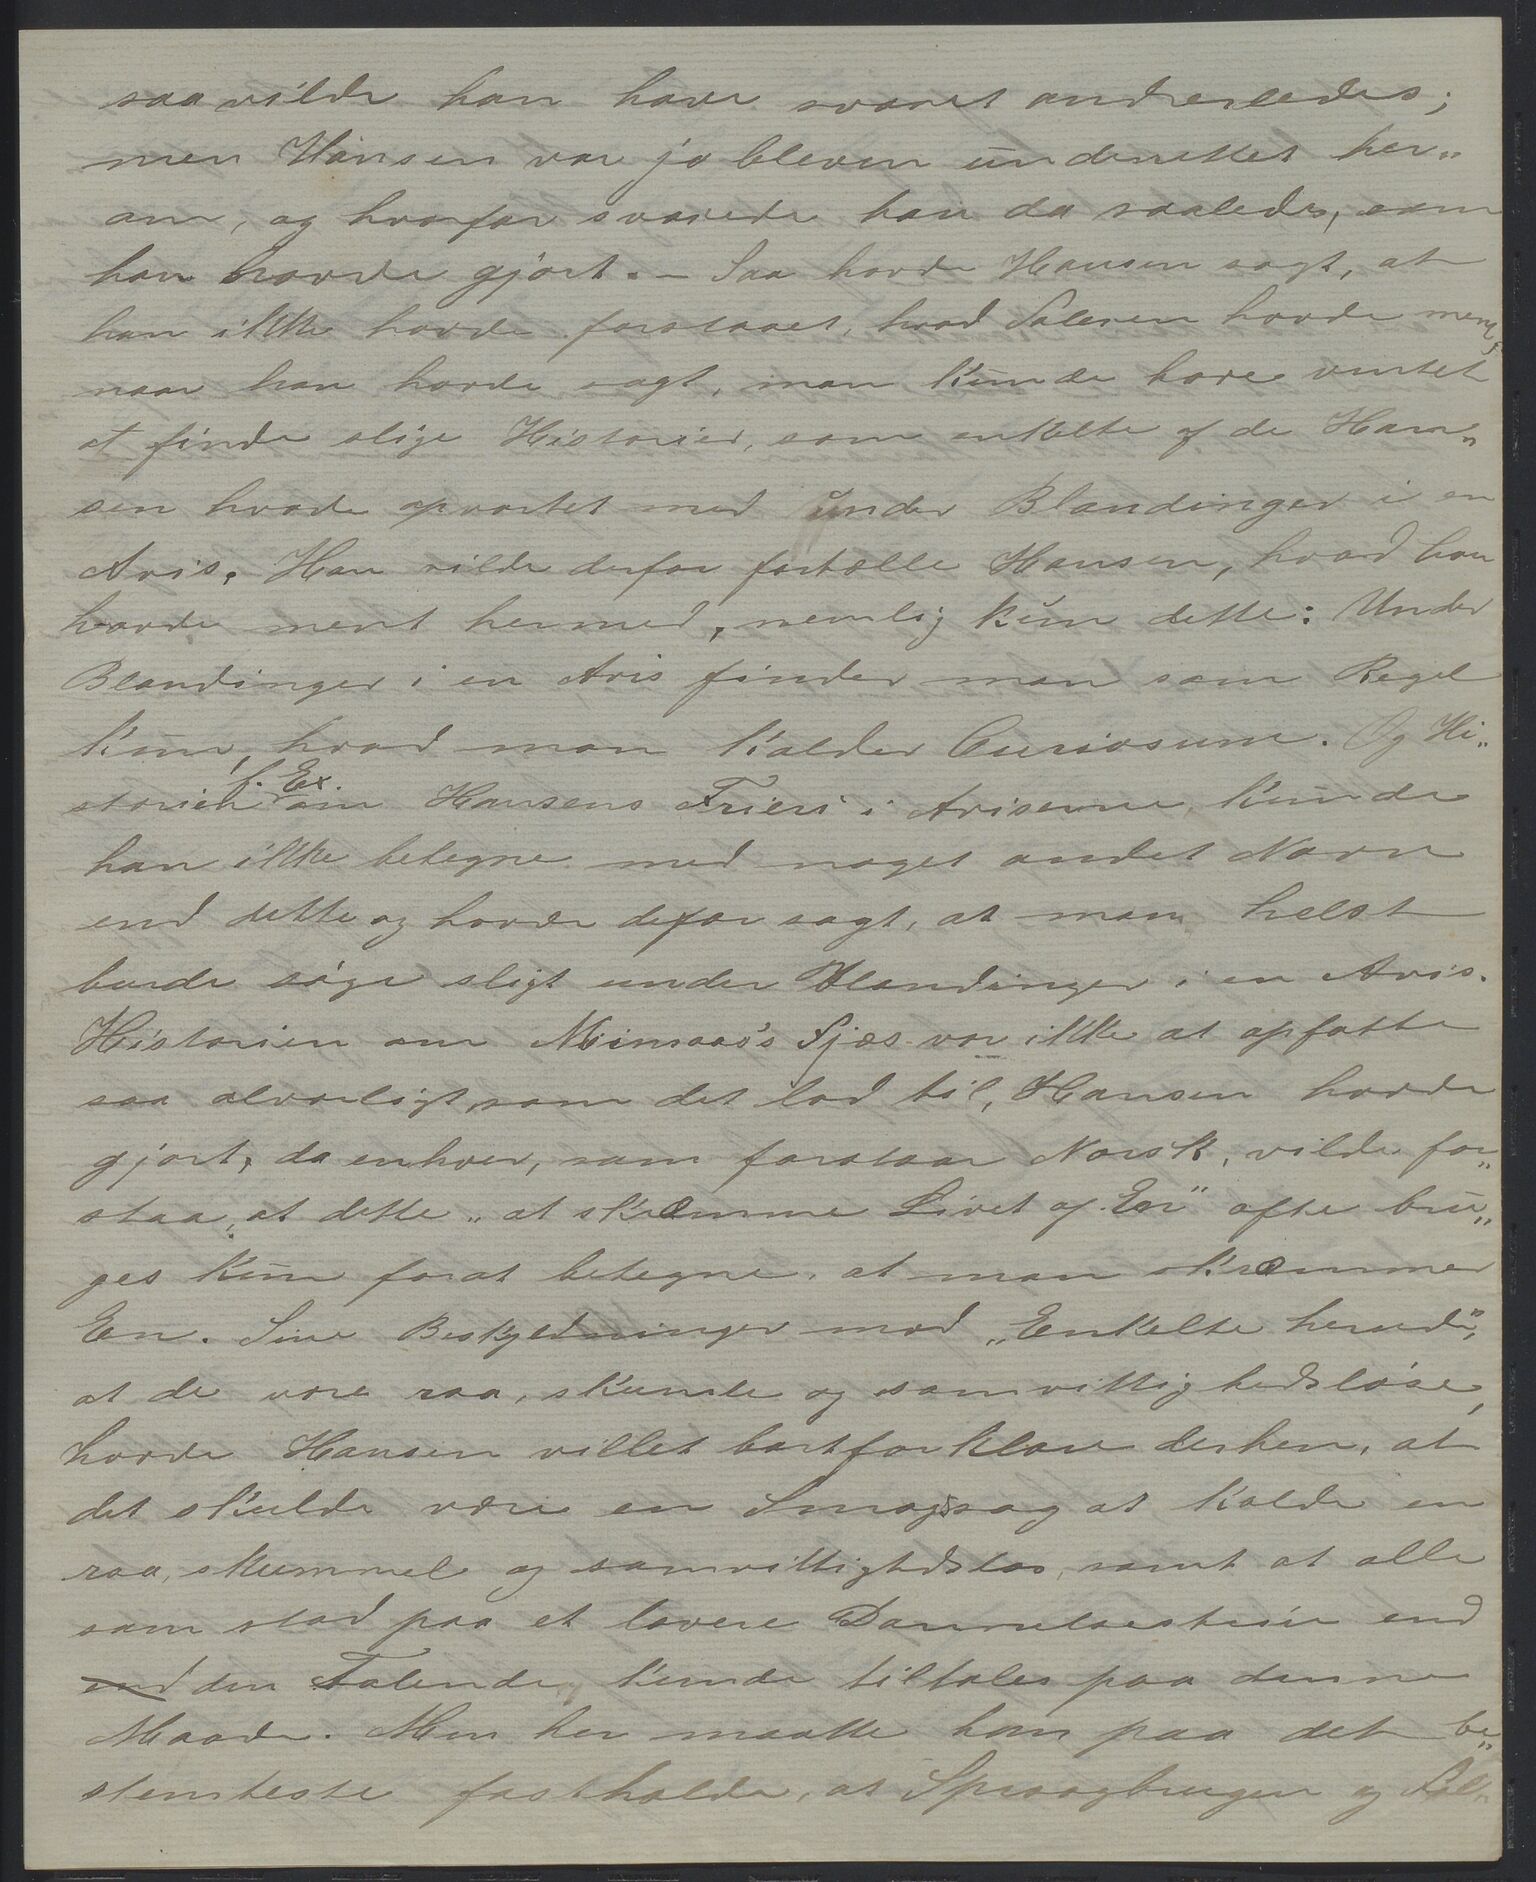 saa vilde han have svaret anderledes;
men Hansen var jo bleven underrettet her„
om, og hvorfor svarede han da saaledes, som
han havde gjort. – Saa havde Hansen sagt, at
han ikke havde forstaaet, hvad Taleren havde ment,
naar han havde sagt, man kunde have ventet
at finde slige Historier, som enkelte af de Han„
sen havde opvartet med under Blandinger i en
Avis. Han vilde derfor fortælle Hansen, hvad han
havde ment hermed, nemlig kun dette: Under
Blandinger i en Avis finder man som Regel
kun, hvad man kalder Curiosum. Og Hi„
storien f. Ex. om Hansens Frieri i Aviserne, kunde
han ikke betegne med noget andet Navn
end dette og havde defor sagt, at man helst
burde søge sligt under Blandinger i en Avis.
Historien om Mimaas's Fjæs var ikke at opfatte
saa alvorligt, som det lod til, Hansen havde
gjort, da enhver, som forstaar Norsk, vilde for„
staa, at dette „at skræmme Livet af En" ofte bru„
ges kun forat betegne, at man skræmmer
En. Sine Beskyldninger mod „Enkelte herude",
at de vare raa, skumle og samvittighedsløse,
havde Hansen villet bortforklare derhen, at
det skulde være en Smagssag at kalde en
raa, skummel og samvittighedsløs, samt at alle
som stod paa et lavere Dannelsestrin end
end den Talende, kunde tiltales paa denne
Maade. Men her maatte han paa det be„
stemteste fastholde, at Sprogbrugen og